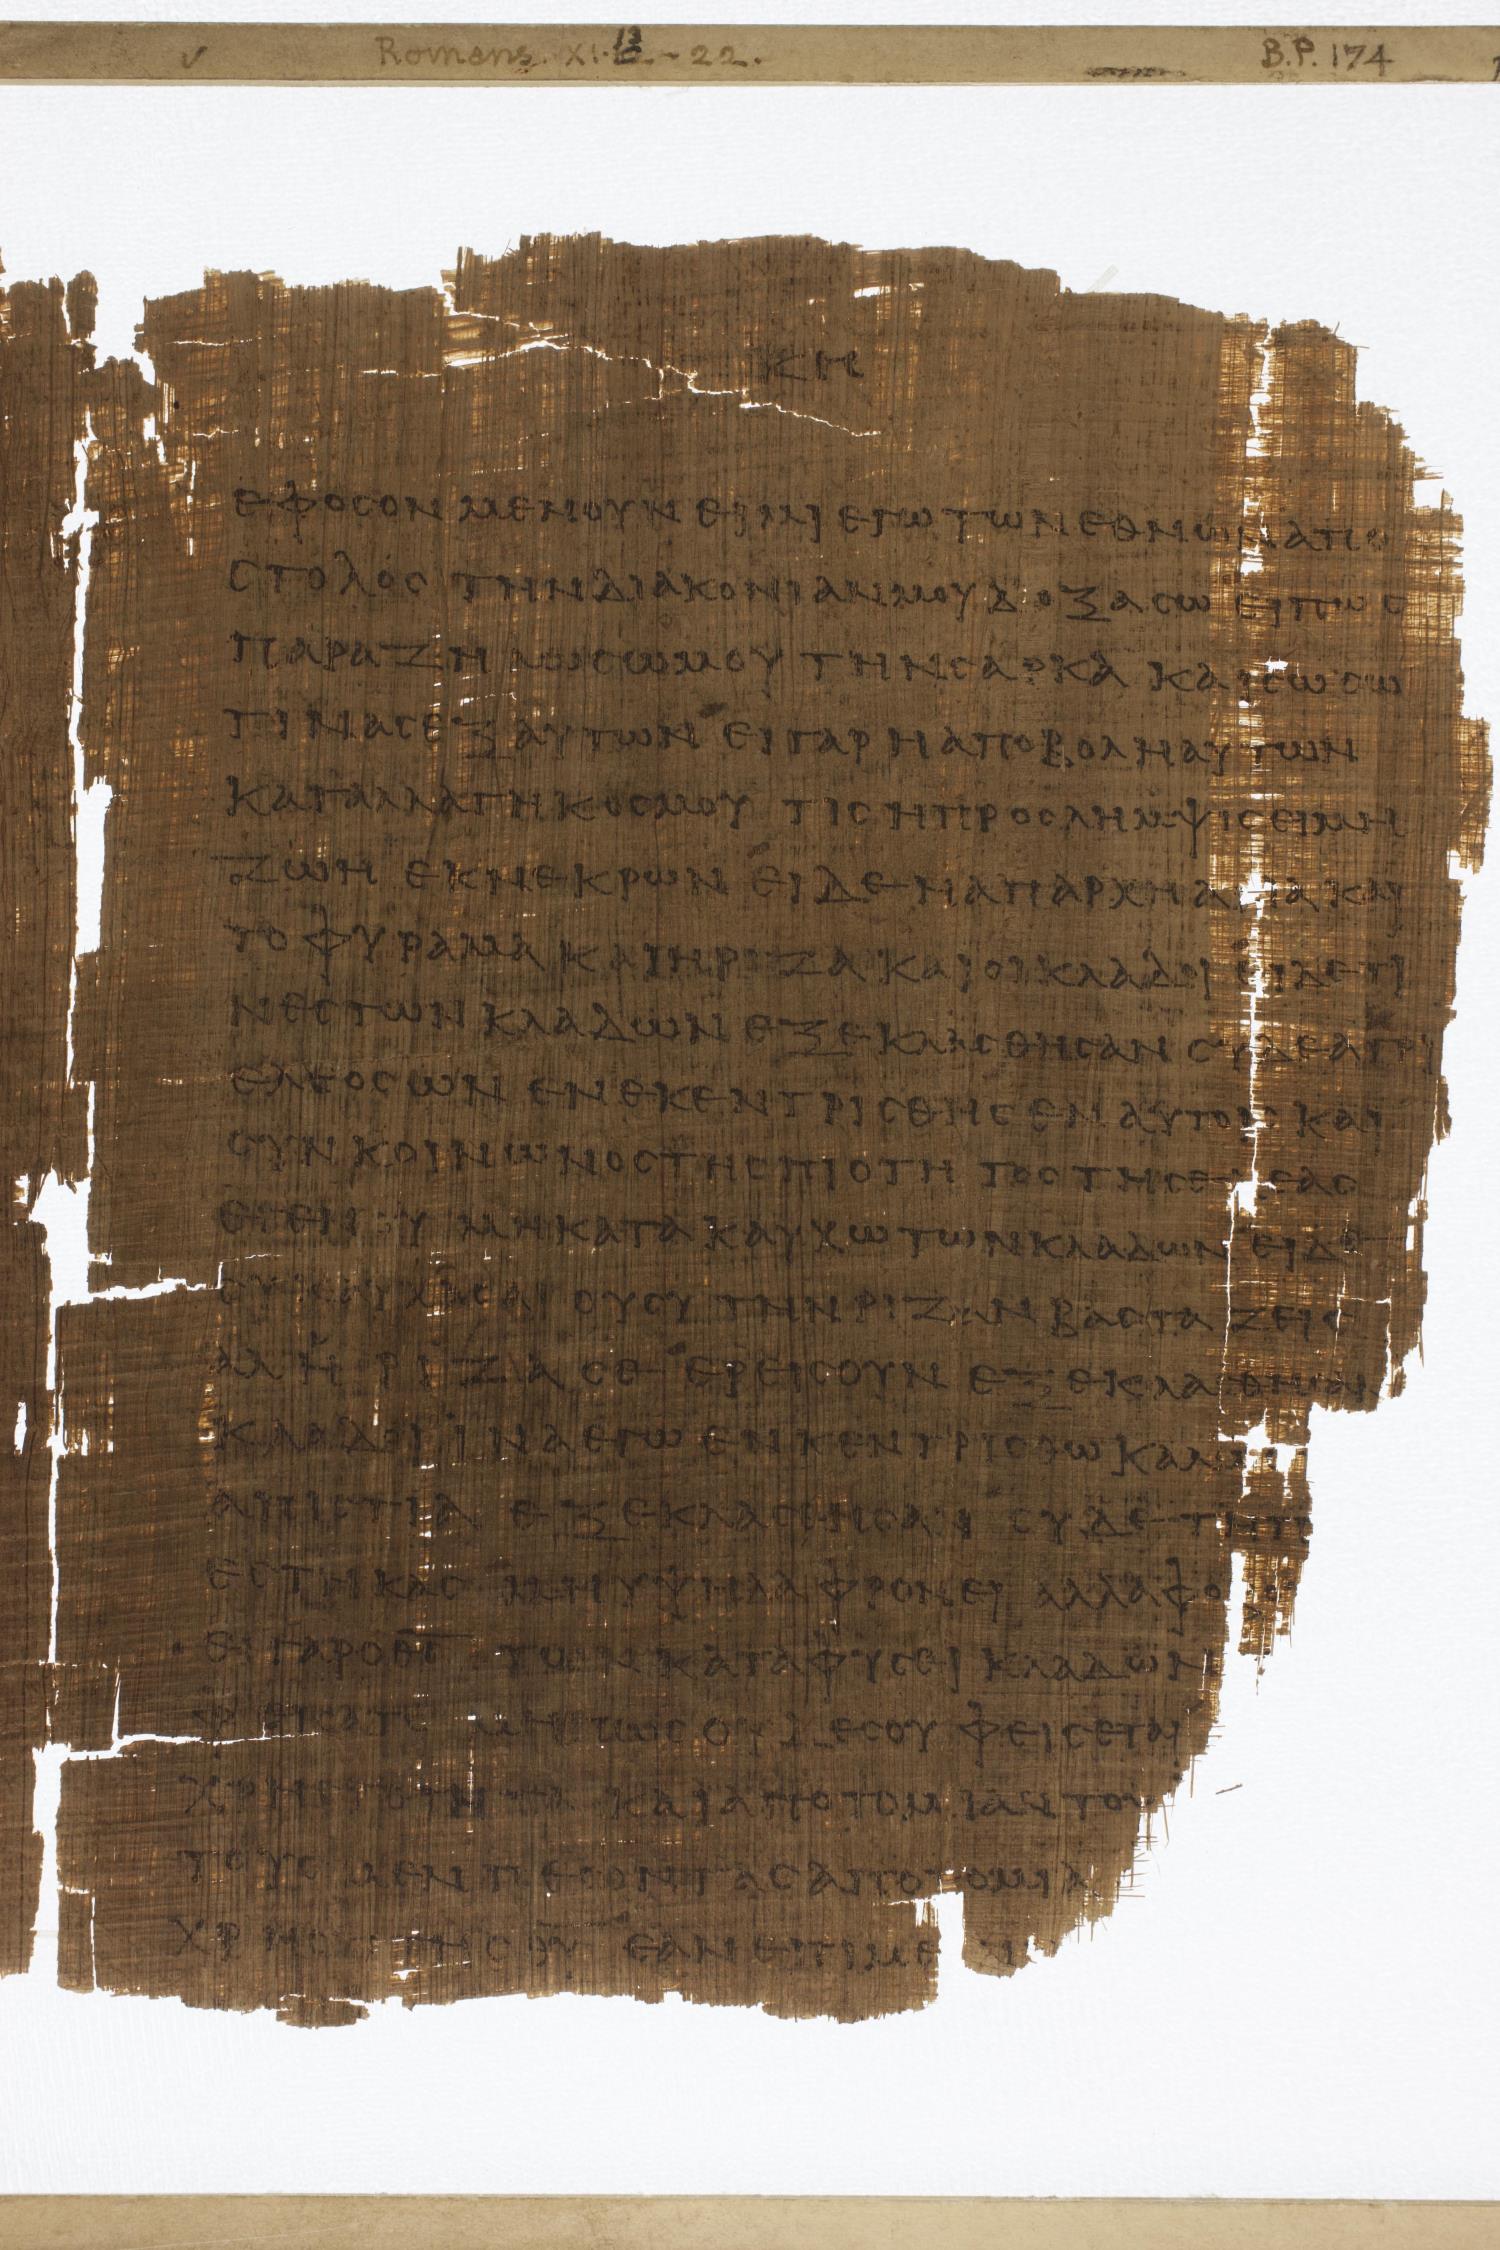 Romans. XI. 13 - 22. B.P. 174
ΚΗ
ΕΦΟϹΟΝ ΜΕΝΟΥΝ ΕΙΜΙ ΕΓΩ ΤΩΝ ΕΘΝΩΝ ΑΠΟ
ϹΤΟΛΟϹ ΤΗΝ ΔΙΑΚΟΝΙΑΝ ΜΟΥ ΔΟΞΑϹΩ ΕΙΠΩϹ
ΠΑΡΑΖΗΛΩϹΩ ΜΟΥ ΤΗΝ ϹΑΡΚΑ ΚΑΙ ϹΩϹΩ
ΤΙΝΑϹ ΕΞ ΑΥΤΩΝ ΕΙ ΓΑΡ Η ΑΠΟΒΟΛΗ ΑΥΤΩΝ
ΚΑΤΑΛΛΑΓΗ ΚΟϹΜΟΥ ΤΙϹ Η ΠΡΟϹΛΗΜΨΙϹ ΕΙ ΜΗ
ΖΩΗ ΕΚ ΝΕΚΡΩΝ ΕΙ ΔΕ Η ΑΠΑΡΧΗ ΑΓΙΑ ΚΑΙ
ΤΟ ΦΥΡΑΜΑ ΚΑΙ Η ΡΙΖΑ ΚΑΙ ΟΙ ΚΛΑΔΟΙ ΕΙ ΔΕ ΤΙ
ΝΕϹ ΤΩΝ ΚΛΑΔΩΝ ΕΞΕΚΛΑϹΘΗϹΑΝ ϹΥ ΔΕ ΑΓΡΙ
ΕΛΕΟϹ ΩΝ ΕΝΕΚΕΝΤΡΙϹΘΗϹ ΕΝ ΑΥΤΟΙϹ ΚΑΙ
ϹΥΝΚΟΙΝΩΝΟϹ ΤΗϹ ΠΙΟΤΗΤΟϹ ΤΗϹ ΕΛΕΑϹ
ΜΗ ΚΑΤΑΚΑΥΧΩ ΤΩΝ ΚΛΑΔΩΝ ΕΙ ΔΕ
ϹΥ ΚΑΥΧΑϹΑΙ ΟΥ ϹΥ ΤΗΝ ΡΙΖΑΝ ΒΑϹΤΑΖΕΙϹ
ΑΛΛ Η ΡΙΖΑ ϹΕ ΕΡΕΙϹ ΟΥΝ ΕΞΕΚΛΑϹΘΗϹΑΝ
ΚΛΑΔΟΙ ΙΝΑ ΕΓΩ ΕΝΚΕΝΤΡΙϹΘΩ ΚΑΛΩϹ
ΑΠΙϹΤΙΑ ΕΞΕΚΛΑϹΘΗϹΑΝ ϹΥ ΔΕ ΤΗ Π
ΕϹΤΗΚΑϹ ΜΗ ΥΨΗΛΑ ΦΡΟΝΕΙ ΑΛΛΑ ΦΟΒΟΥ
ΕΙ ΓΑΡ Ο Θ̅Ϲ̅ ΤΩΝ ΚΑΤΑ ΦΥϹΕΙ ΚΛΑΔΩΝ
ΜΗ ΠΩϹ ΟΥΔΕ ϹΟΥ ΦΕΙϹΕΤΑΙ
ΚΑΙ ΑΠΟΤΟΜΙΑΝ ΤΟΥ
ΤΟΥϹ ΜΕΝ ΠΕϹΟΝΤΑϹ ΑΠΟΤΟΜΙΑ
ΕΑΝ ΕΠΙΜΕ